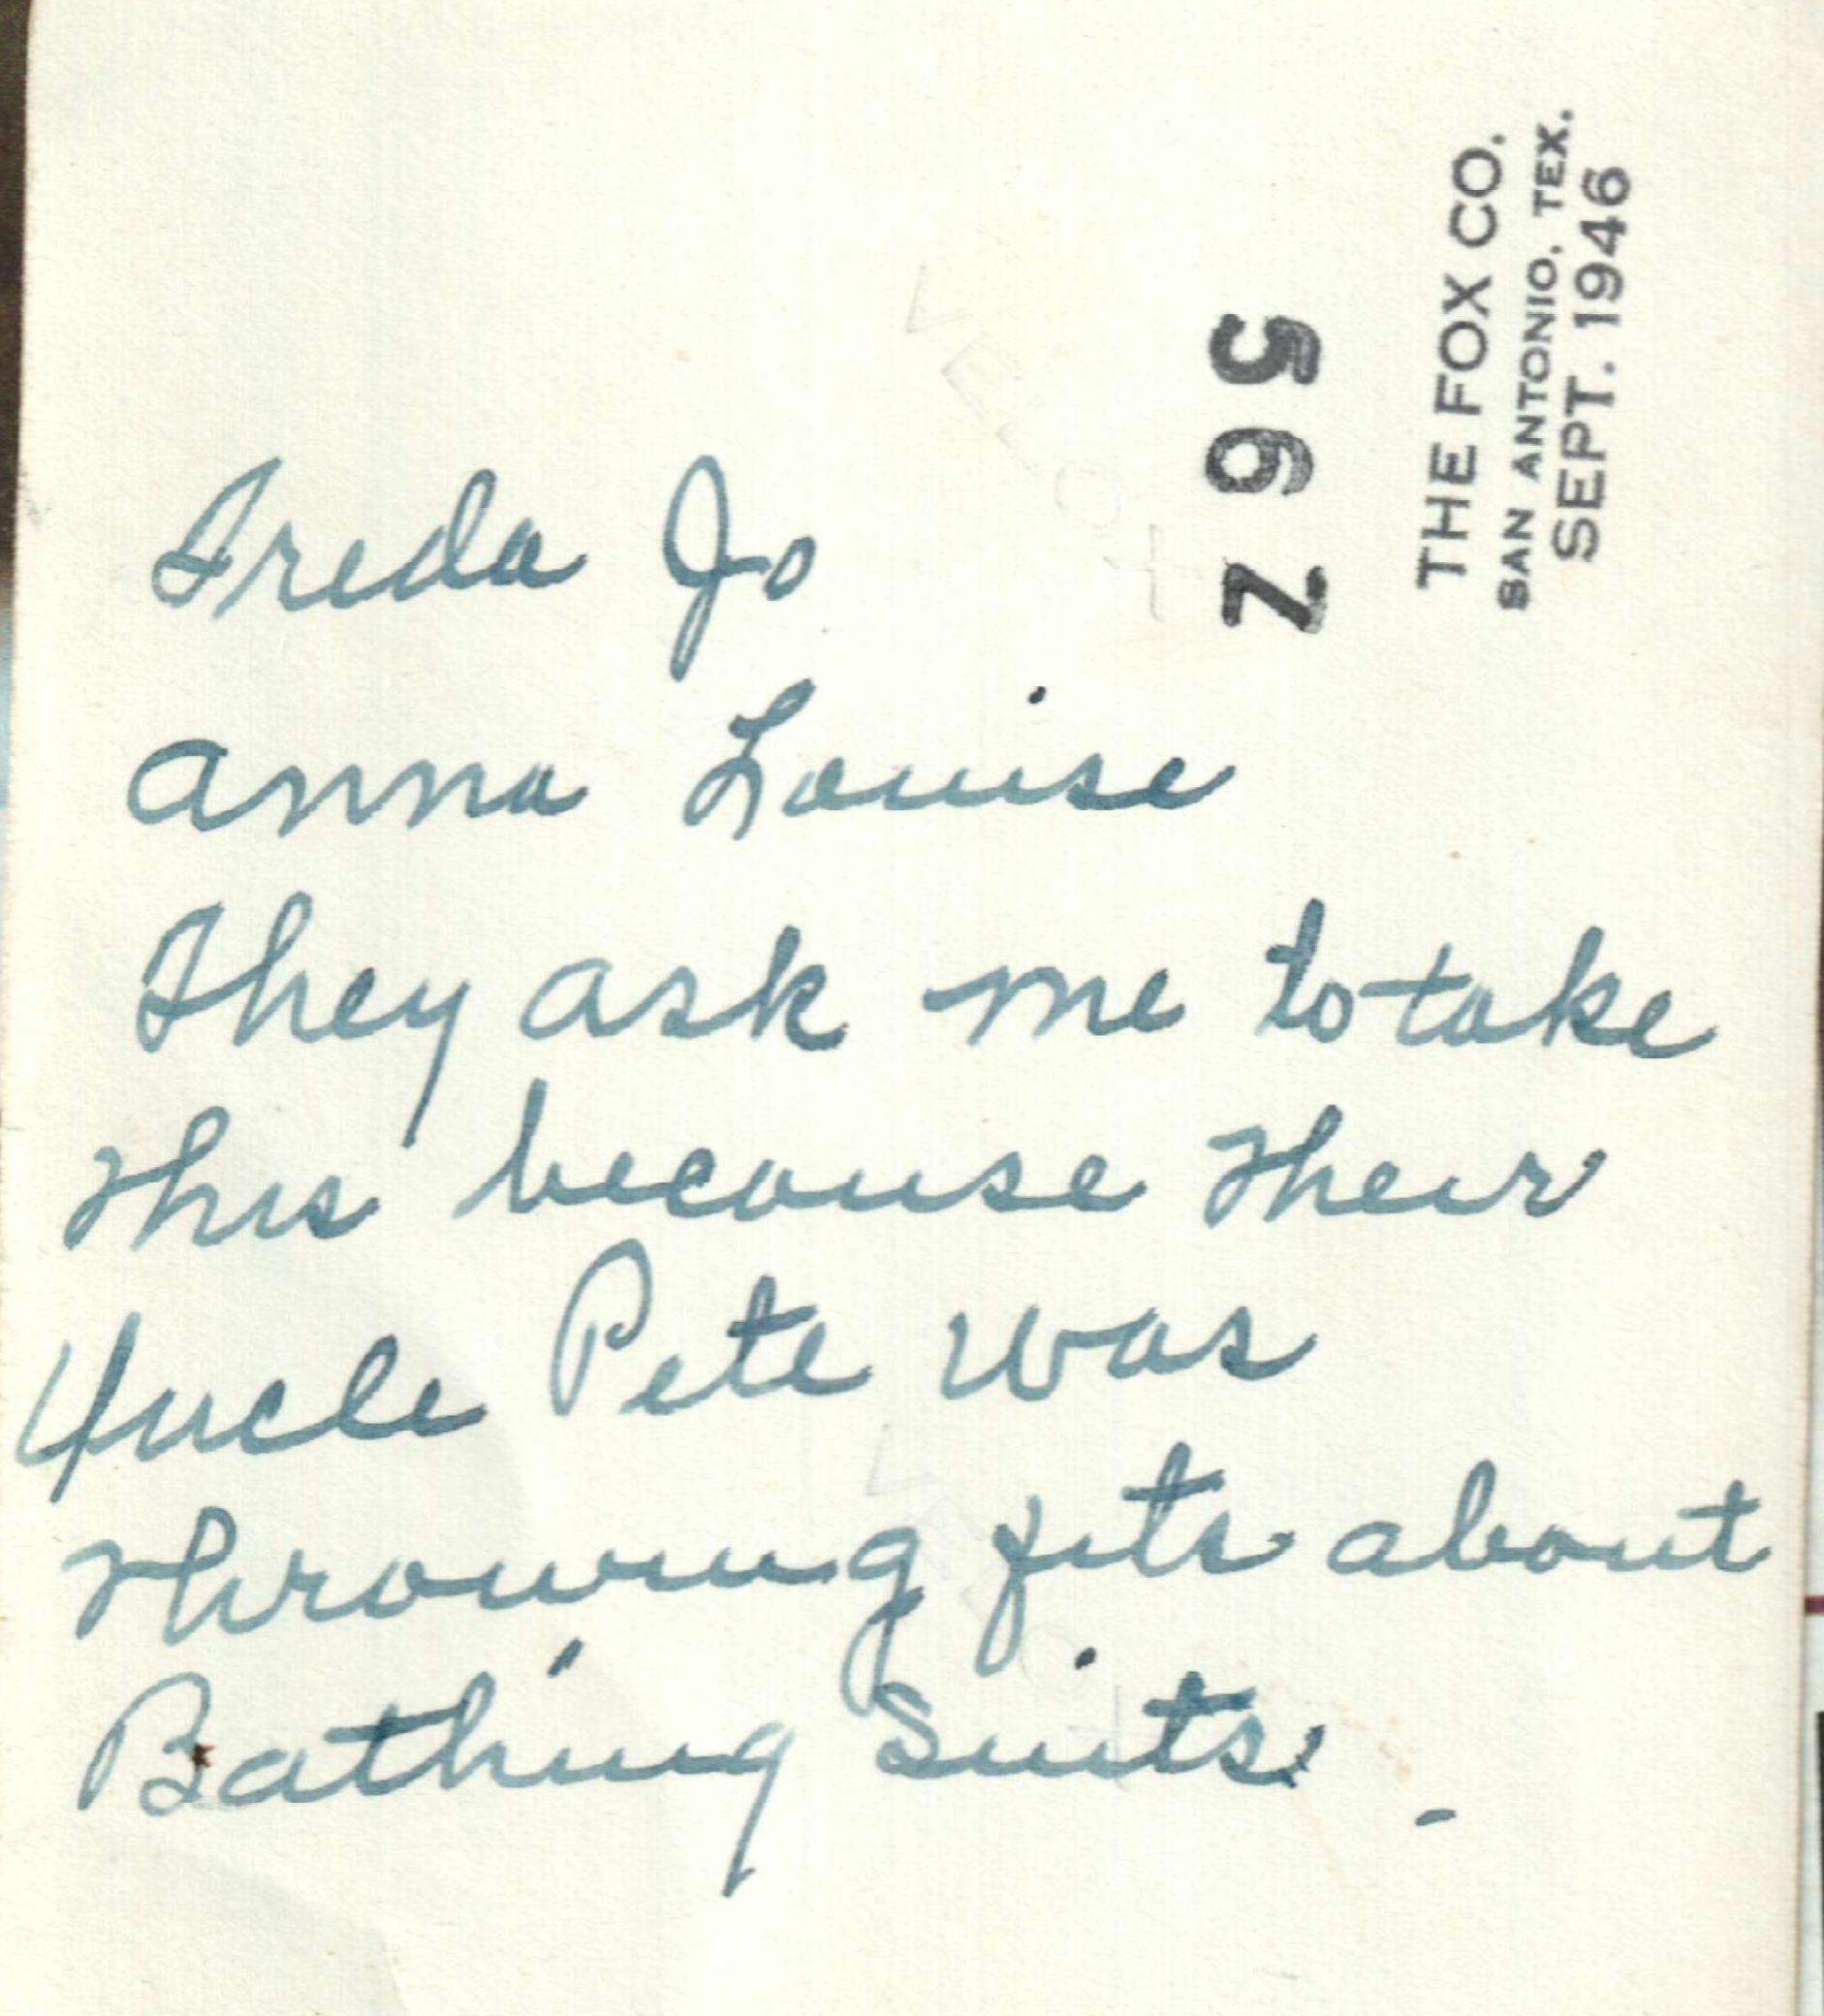 THE FOX CO.
SAN ANTONIO, TEX.
SEPT. 1946
Freda Jo
Anna Louise
They ask me to take
this because their
Uncle Pete was
throwing fits about
Bathing Suits.